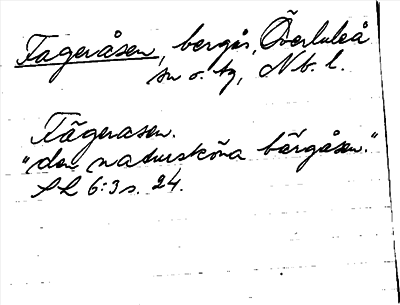 Fageråsen, bergås, Överluleå
sn o. tg, Nb. l.
Fāgeråsen.
"den natursköna bärgåsen."
SL 6:3 s. 24.